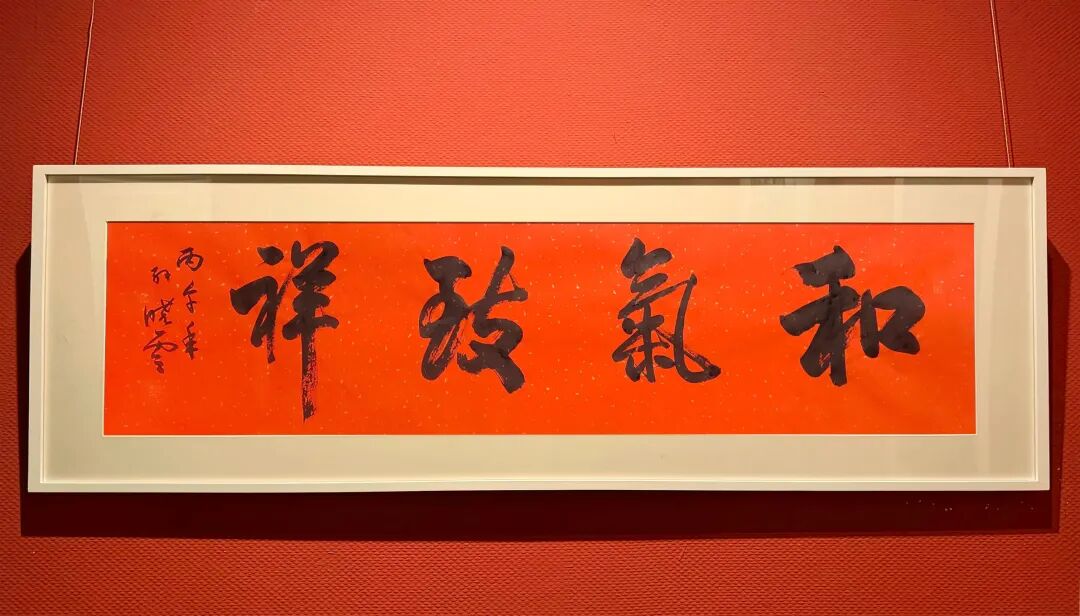 和氣致祥
丙午年
孫曉雲